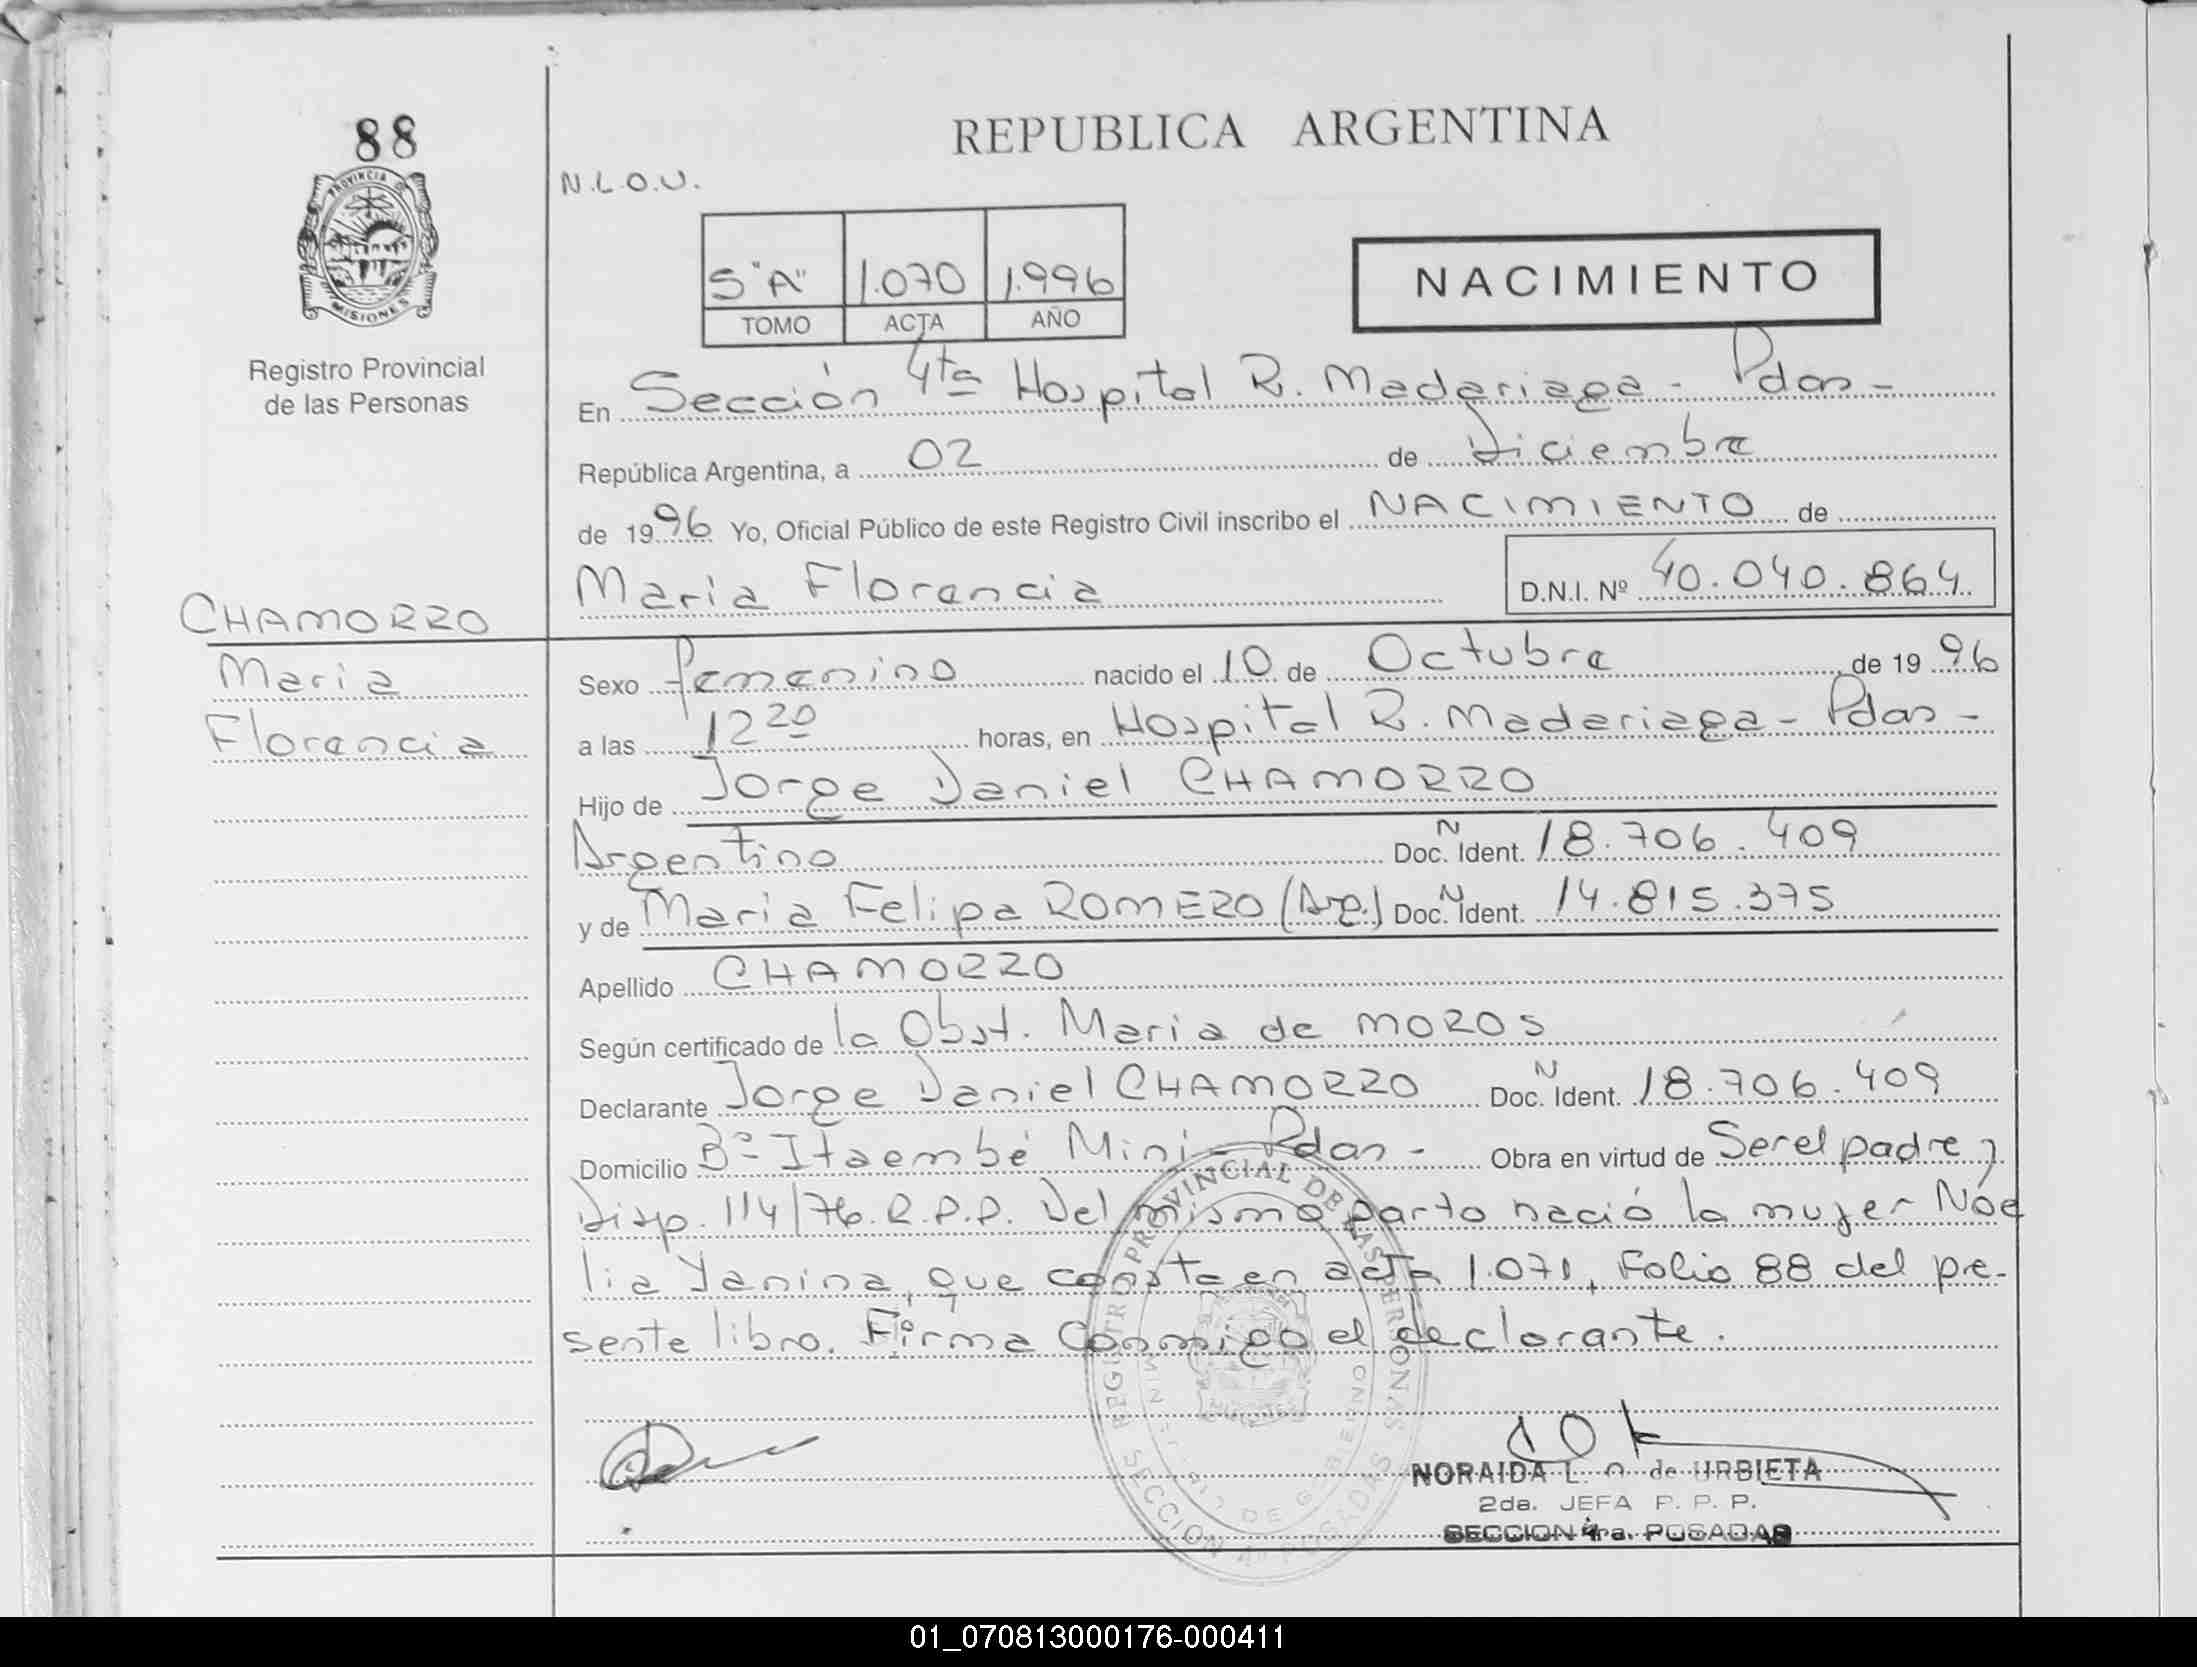 88
PROVINCIA DE
MISIONES
Registro Provincial
de las Personas
REPUBLICA ARGENTINA
N.L.O.U.
5 "A" 1.070 1.996
TOMO ACTA AÑO
NACIMIENTO
En Sección 4ta Hospital R. Madariaga - Pdas -
República Argentina, a 02 de Diciembre
de 1996 Yo, Oficial Público de este Registro Civil inscribo el NACIMIENTO de
Maria Florencia D.N.I. Nº 40.040.864
CHAMORRO
Maria
Florencia
Sexo femenino nacido el 10 de Octubre de 1996
a las 12 20 horas, en Hospital R. Madariaga - Pdas -
Hijo de Jorge Daniel CHAMORRO
Argentino Doc. N Ident. 18.706.409
y de Maria Felipa ROMERO (Arg.) Doc. N Ident. 14.815.375
Apellido CHAMORRO
Según certificado de la Obst. Maria de MOROS
Declarante Jorge Daniel CHAMORRO Doc. N Ident. 18.706.409
Domicilio Bº Itaembé Mini - Pdas - Obra en virtud de Ser el padre y
Disp. 114/76. R.P.P. Del mismo parto nació la mujer Noe
lia Yanina, que consta en acta 1.071, Folio 88 del pre-
sente libro. Firma Conmigo el declarante.
REGISTRO PROVINCIAL DE LAS PERSONAS
MINISTERIO DE GOBIERNO
SECCION 4ª POSADAS
NORAIDA L. O. de URBIETA
2da. JEFA P. P. P.
SECCION 4ra. POSADAS
01_070813000176-000411